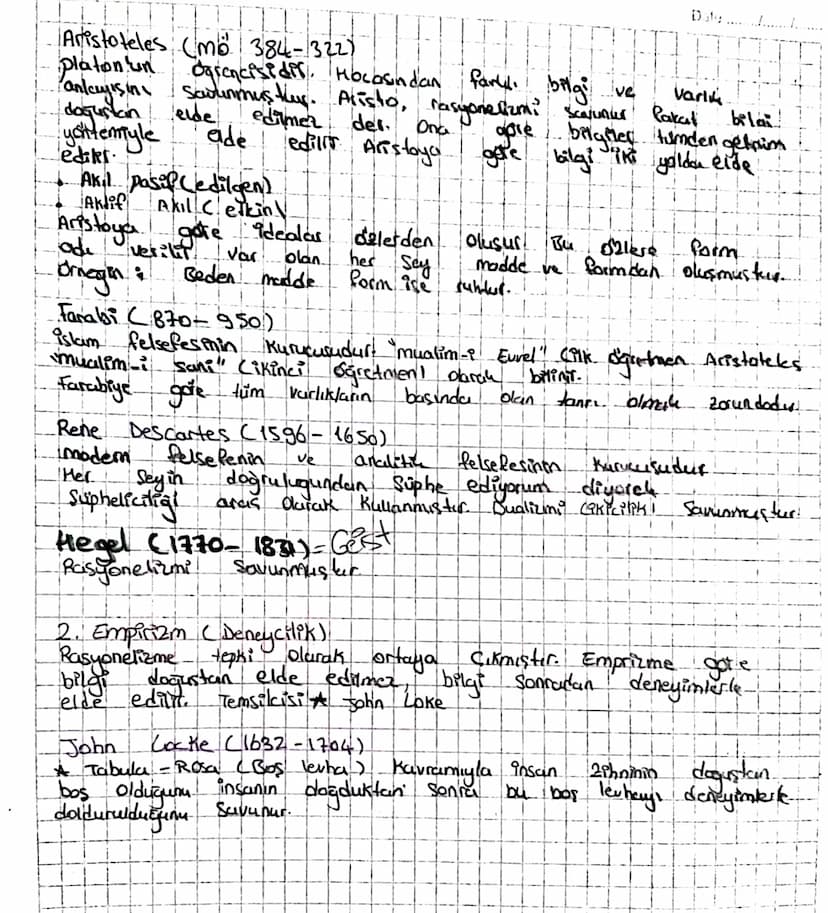 Date....../....../......
Aristoteles (mö 384-322)
platon'un öğrencisidir. Hocasından farklı bilgi ve varlık
anlayışını savunmuştur. Aristo, rasyonelizmi savunur fakat bilgi
doğuştan elde edilmez der. Ona göre bilgiler tümdengelim
yöntemiyle elde edilir Aristoya göre bilgi iki yolda elde
edilir.
• Akıl pasif (edilgen)
• Aktif Akıl (etkin)
Aristoya göre idealar özlerden oluşur Bu özlere form
adı verilir var olan her şey madde ve formdan oluşmuştur.
Örneğin; Beden madde form ise ruhtur.
Farabi (870-950)
islam felsefesinin kurucusudur "mualim-i Evvel" (ilk öğretmen Aristoteles
"mualim-i sani" (ikinci öğretmen) olarak bilinir.
Farabiye göre tüm varlıkların başında olan tanrı olmak zorundadır
Rene Descartes (1596-1650)
modern felsefenin ve analitik felsefesinin kurucusudur
Her şeyin doğruluğundan şüphe ediyorum diyerek
Şüpheciliği araç olarak kullanmıştır. Dualizmi (ikicilik) savunmuştur.
Hegel (1770-1831)= Geist
Rasyonelizmi savunmuştur
2. Empirizm (Deneycilik)
Rasyonelizme tepki olarak ortaya çıkmıştır. Emprizme göre
bilgi doğuştan elde edilmez, bilgi sonradan deneyimlerle
elde edilir. Temsilcisi ★ john Loke
John Locke (1632-1704)
★ Tabula-Rosa (Boş levha) kavramıyla insan zihninin doğuştan
boş olduğunu insanın doğduktan sonra bu boş levhayı deneyimlerle
doldurulduğunu savunur.